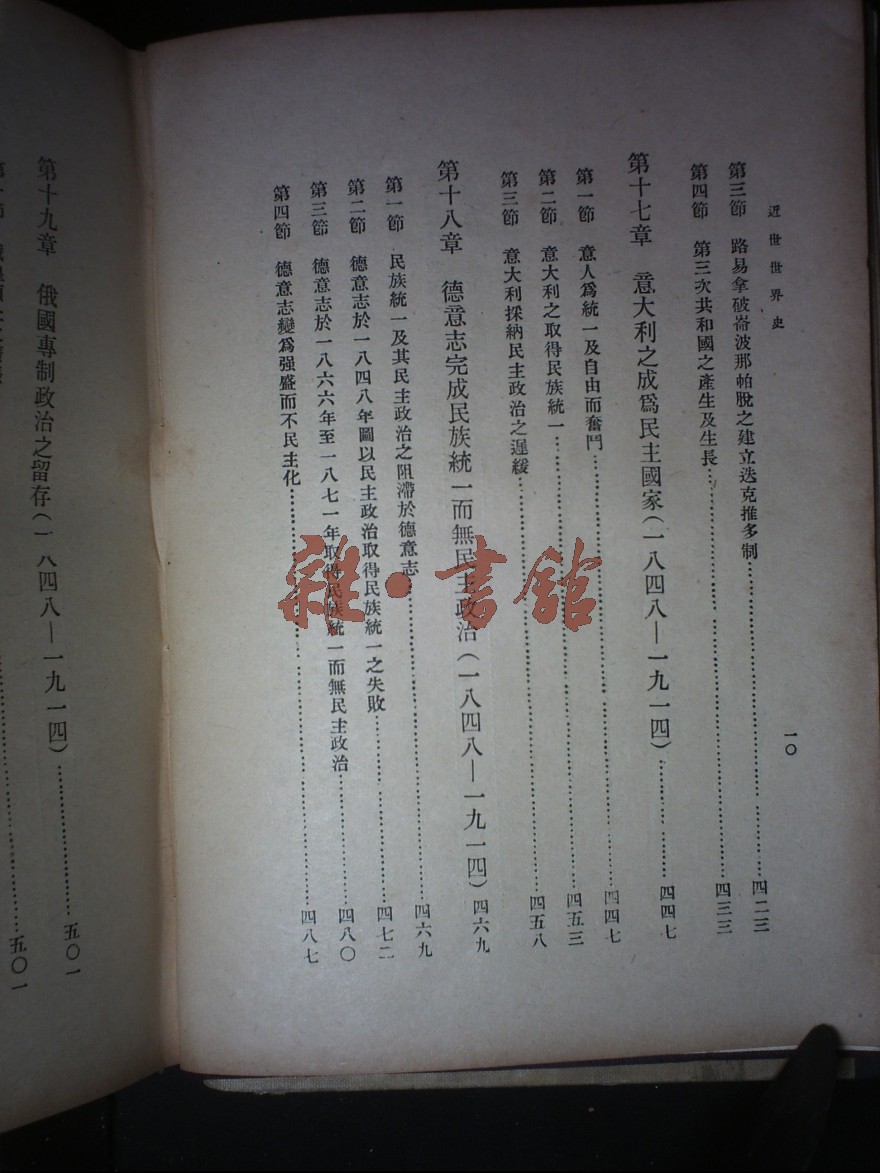 近世世界史
一〇
第三節　路易拿破崙波那帕脫之建立迭克推多制…………四二三
第四節　第三次共和國之產生及生長…………四三三
第十七章　意大利之成爲民主國家(一八四八—一九一四)…………四四七
第一節　意人爲統一及自由而奮鬥…………四四七
第二節　意大利之取得民族統一…………四五三
第三節　意大利採納民主政治之遲緩…………四五八
第十八章　德意志完成民族統一而無民主政治(一八四八—一九一四)四六九
第一節　民族統一及其民主政治之阻滯於德意志…………四六九
第二節　德意志於一八四八年圖以民主政治取得民族統一之失敗…………四七二
第三節　德意志於一八六六年至一八七一年取得民族統一而無民主政治…………四八〇
第四節　德意志變爲强盛而不民主化…………四八七
第十九章　俄國專制政治之留存(一八四八—一九一四)…………五〇一
…………五〇一
雜·書館